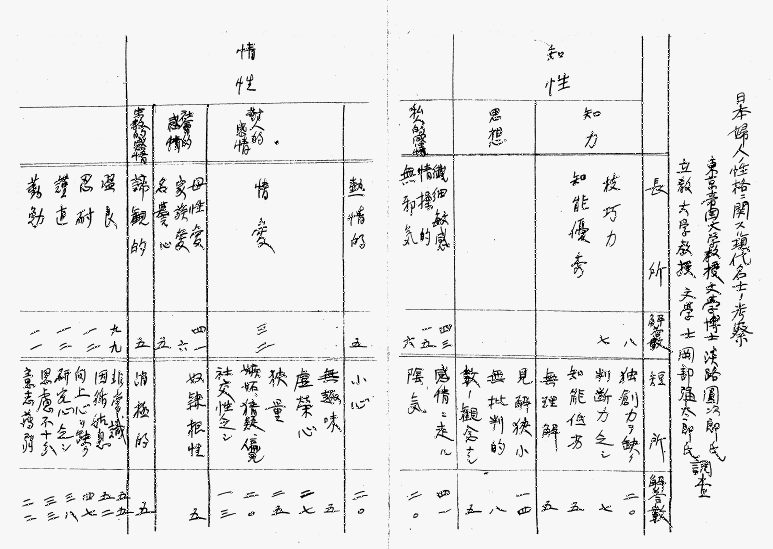 日本婦人性格ニ関スル現代名士ノ考察
東京帝國大學教授文學博士 淡路圓次郎氏
立教大学教授 文學士 岡部彌太郎氏 調査
長所
解答數
短所
解答數
知性
知力
技巧力
八
知能優秀
七
独創力ヲ缺ク
二〇
判断力乏シ
七
知能低劣
五
無理解
五
思想
見解狭小
一四
無批判的
八
數ノ観念ナシ
五
私人的感情
繊細敏感
四三
情操的
一五
無邪気
六
感情ニ走ル
四一
陰気
二〇
情性
熱情的
五
小心
二〇
對人的感情
情愛
三二
無趣味
五
虚榮心
二七
狭量
二五
嫉妬、猜疑、偏寵
二〇
社交性乏シ
一三
社會的感情
母性愛
四一
家族愛
一六
名誉心
五
奴隷根性
五
宗教的感情
諦観的
五
消極的
五
温良
九九
忍耐
謹直
勤勉
非常識
五五
因循姑息
五二
向上心ヲ缺ク
四七
研究心乏シ
三八
思慮不十分
意志薄弱